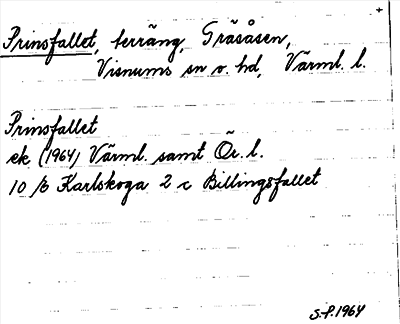 +
Prinsfallet, terräng, Gräsåsen,
Visnums sn o. hd, Värml. l.
Prinsfallet
ek. (1964) Värml. samt Ör. l.
10 Karlskoga 2 c Billingsfallet
S.P. 1964